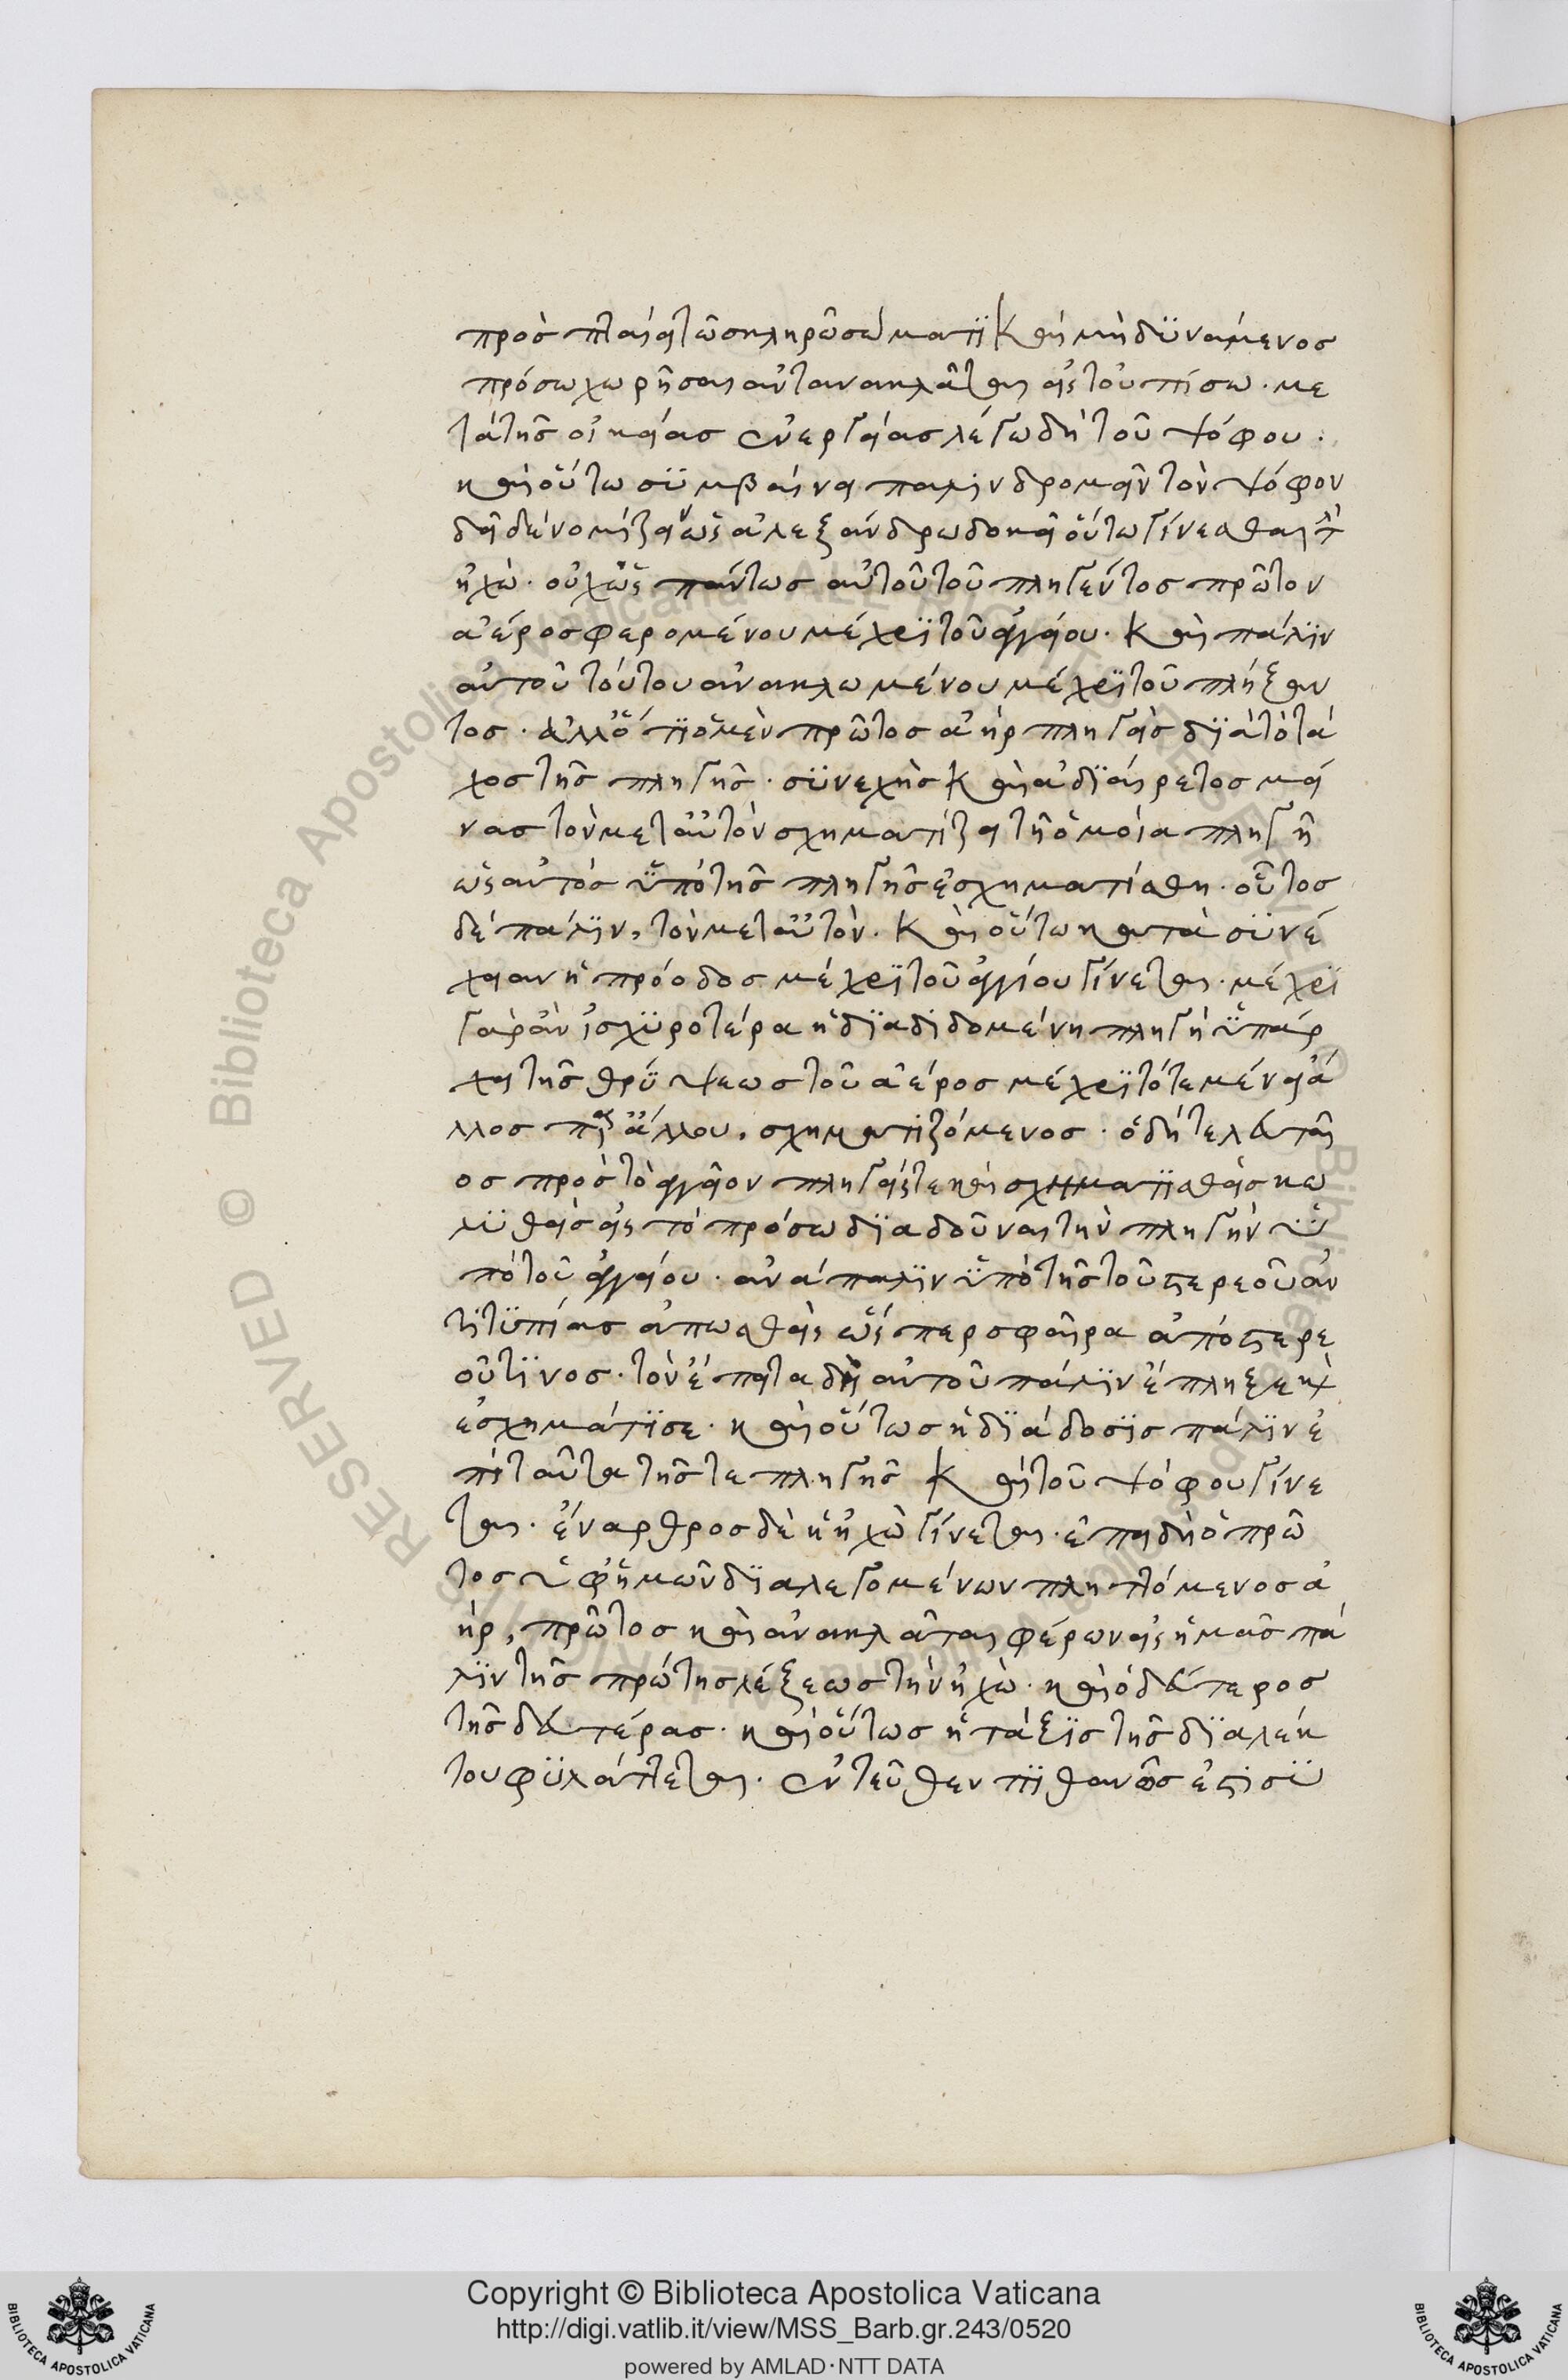 προσπταίει τῶ σκληρῶ σώματι καὶ μὴ δυνάμενος
πρόσω χωρῆσαι ἀντανακλᾶται εἰς τοὐπίσω. με
τὰ τῆς οἰκείας ἐνεργείας λέγω δὴ τοῦ ψόφου.
καὶ οὕτω συμβαίνει παλινδρομεῖν τὸν ψόφον
δεῖ δὲ νομίζειν ὡς ἀλεξάνδρω δοκεῖ οὕτω γίνεσθαι τὴν
ἠχώ. οὐχ ὡς πάντως αὐτοῦ τοῦ πληγέντος πρῶτον
ἀέρος φερομένου μέχρι τοῦ ἀγγείου. καὶ πάλιν
αὐτοῦ τούτου ἀνακλωμένου μέχρι τοῦ πλήξαν
τος. ἀλλ' ὅτι ὁ μὲν πρῶτος ἀὴρ πληγεὶς διὰ τὸ τά
χος τῆς πληγῆς. συνεχὴς καὶ ἀδιαίρετος μεί
νας τὸν μετ' αὐτὸν σχηματίζει τῆ ὁμοία πληγῆ
ὡς αὐτὸς ὑπὸ τῆς πληγῆς ἐσχηματίσθη. οὗτος
δὲ πάλιν, τὸν μετ' αὐτόν. καὶ οὕτω κατὰ συνέ
χειαν ἡ πρόοδος μέχρι τοῦ ἀγγείου γίνεται. μέχρι
γὰρ ἂν ἰσχυροτέρα ἡ διαδιδομένη πληγὴ ὑπάρ
χει τῆς θρύψεως τοῦ ἀέρος μέχρι τότε μένει ἄ
λλος πρὸς ἄλλου, σχηματιζόμενος. ὁ δὴ τελευταῖ
ος πρὸς τὸ ἀγγεῖον πληγείς τε καὶ σχηματισθεὶς κω
λυθεὶς εἰς τὸ πρόσω διαδοῦναι τὴν πληγὴν ὑ
πὸ τοῦ ἀγγείου. ἀνάπαλιν ὑπὸ τῆς τοῦ στερεοῦ ἀν
τιτυπίας ἀπωσθεὶς ὥσπερ σφαῖρα ἀπὸ στερε
οῦ τινος. τὸν ἔπειτα δὴ αὐτοῦ πάλιν ἔπληξε καὶ
ἐσχημάτισε. καὶ οὕτως ἡ διάδοσις πάλιν ἐ
πὶ ταῦτα τῆς τε πληγῆς καὶ τοῦ ψόφου γίνε
ται. ἔναρθρος δὲ ἡ ἠχὼ γίνεται. ἐπειδὴ ὁ πρῶ
τος ὑφ' ἡμῶν διαλεγομένων πληττόμενος ἀ
ήρ, πρῶτος καὶ ἀνακλᾶται φέρων εἰς ἡμᾶς πά
λιν τῆς πρώτης λέξεως τὴν ἠχώ. καὶ ὁ δεύτερος
τῆς δευτέρας. καὶ οὕτως ἡ τάξις τῆς διαλέκ
του φυλάττεται. ἐντεῦθεν πιθανῶς ἐστι συ
Copyright © Biblioteca Apostolica Vaticana
http://digi.vatlib.it/view/MSS_Barb.gr.243/0520
powered by AMLAD·NTT DATA